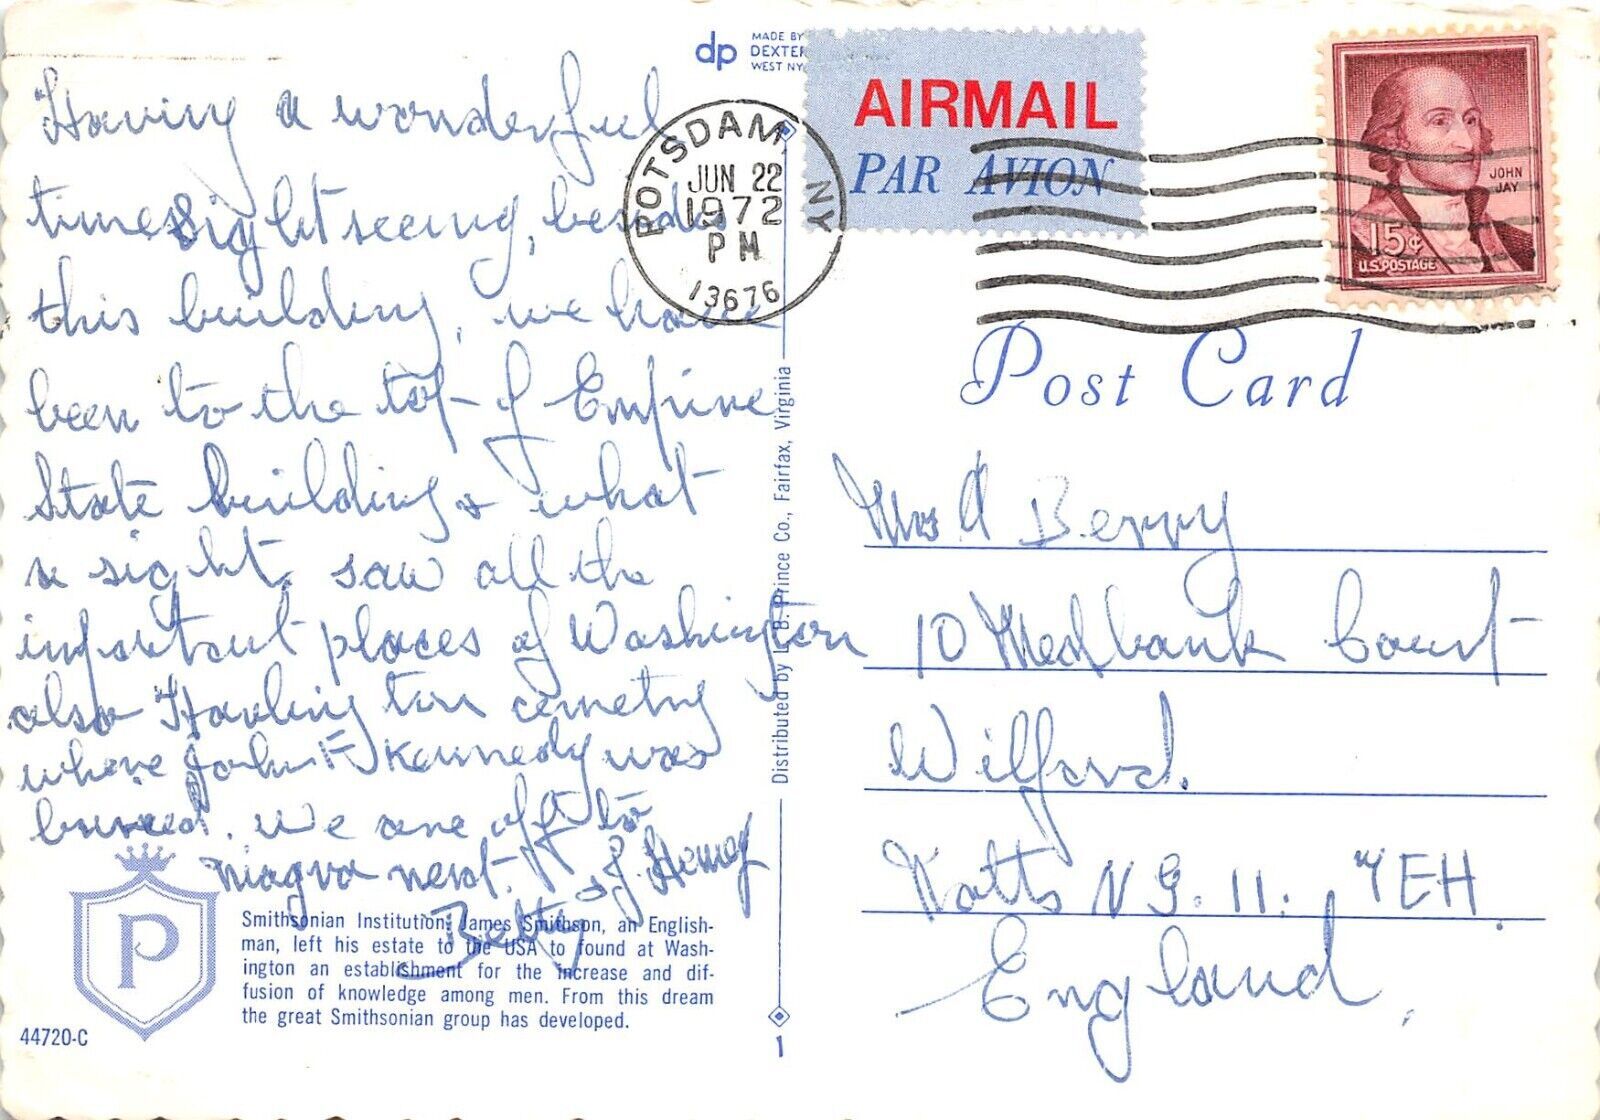 dp
MADE BY
DEXTER
WEST NY
AIRMAIL
PAR AVION
JOHN
JAY
15¢
U.S. POSTAGE
POTSDAM, NY
JUN 22
1972
PM
13676
Having a wonderful
time sight seeing, besides
this building, we have
been to the top of Empire
State building & what
a sight, saw all the
important places of Washington
also Harlington cemetry
where John F Kennedy was
buried. We are off to
niagra next.
Betty &
Distributed by L. B. Prince Co., Fairfax, Virginia
Post Card
Mrs A Berry
10 Medbank Court
Wilford.
Notts N.G. 11. 7EH
England.
P
Smithsonian Institution: James Smithson, an English-
man, left his estate to the USA to found at Wash-
ington an establishment for the increase and dif-
fusion of knowledge among men. From this dream
the great Smithsonian group has developed.
44720-C
1